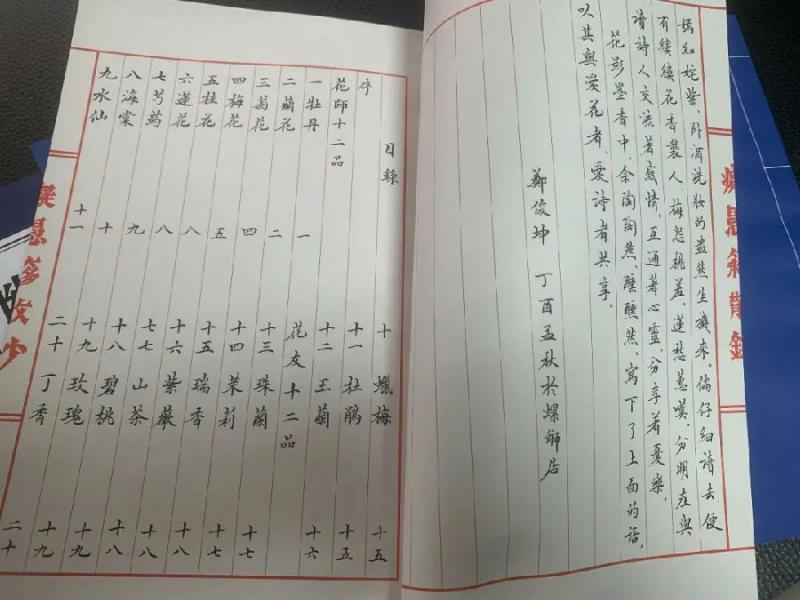 嫣紅姹紫、卧酒洗妝的盎然生機來,倘仔細讀去,便
有縷縷花香襲人,梅怨桃羞,蓮愁蕙嘆,分明在與
讀詩人交流著感情,互通著心靈,分享著憂樂。
花影墨香中,余陶陶然,醺醺然,寫下了上面的話,
以其與愛花者、愛詩者共享。
鄭俊坤 丁酉孟秋於螺獅居
目錄
序
花師十二品
一 牡丹 一
二 蘭花 二
三 菊花 四
四 梅花 五
五 桂花 八
六 蓮花 八
七 芍藥 九
八 海棠 十
九 水仙 十一
十 蠟梅 十五
十一 杜鵑 十五
十二 玉蘭 十六
花友十二品
十三 珠蘭 十七
十四 茉莉 十七
十五 瑞香 十八
十六 紫薇 十八
十七 山茶 十八
十八 碧桃 十九
十九 玫瑰 十九
二十 丁香 二十